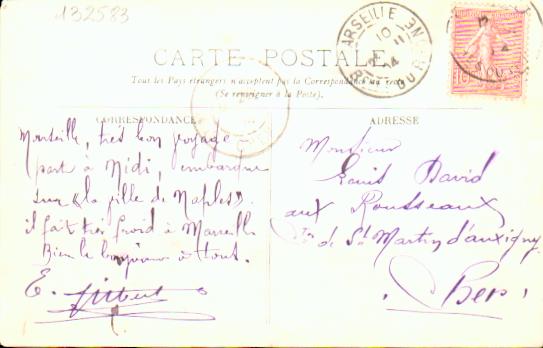 132583
MARSEILLE
10
11
04
CARTE POSTALE
Tous les Pays étrangers n'acceptent pas la Correspondance au recto
(Se renseigner à la Poste).
CORRESPONDANCE
Marseille, très bon voyage
part à Midi, embarque
sur "la ville de Naples".
il fait très froid à Marseille
Bien le bonjour à tout.
E. Gilbert
ADRESSE
Monsieur
Louis David
aux Rousseaux
de St Martin d'auxigny
Cher